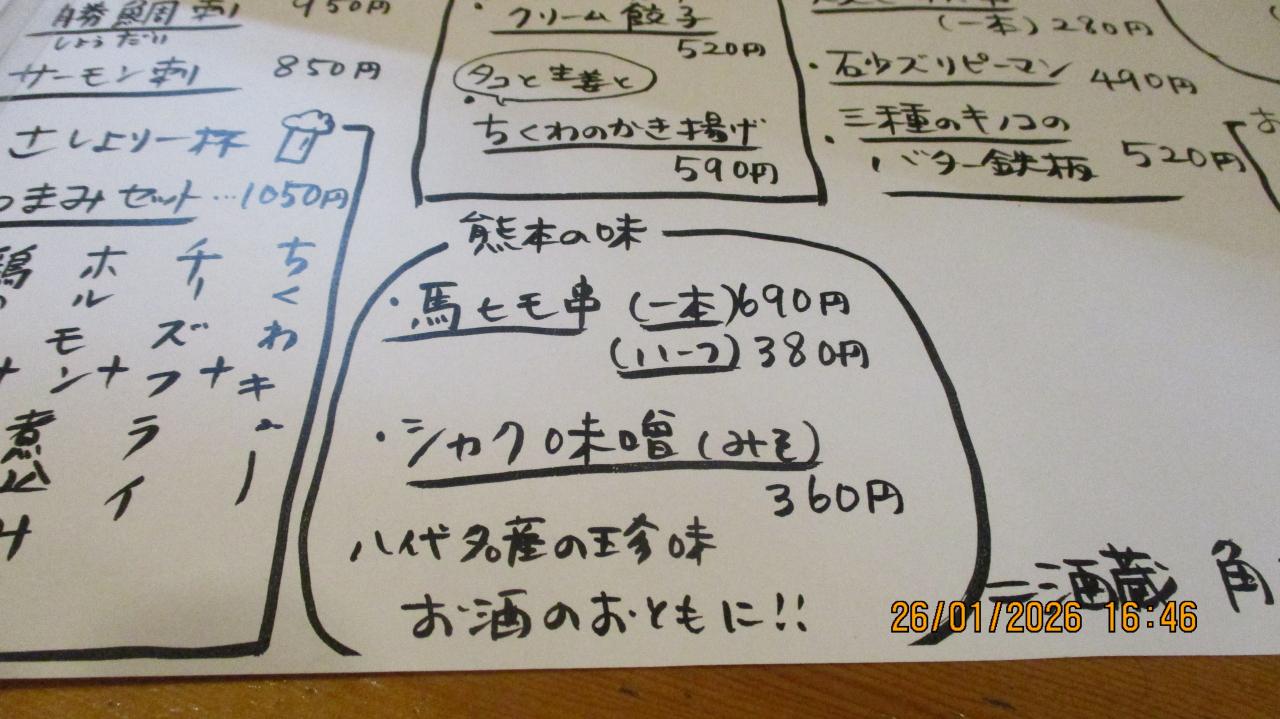 勝魚周刺 950円
しょうだい
サーモン刺 850円
さしよリ一杯
つまみセット…1050円
ちくわキュー
チーズフライ
ホルモン
クリーム餃子
520円
タコと生姜と
ちくわのかき揚げ
590円
(一本) 280円
・石少ズリピーマン 490円
・三種のキノコの
バター鉄板 520円
熊本の味
・馬ヒモ串 (一本) 690円
(ハーフ) 380円
・シャク味噌(みそ)
360円
八代名産の珍味
お酒のおともに!!
二酒蔵 角
26/01/2026 16:46